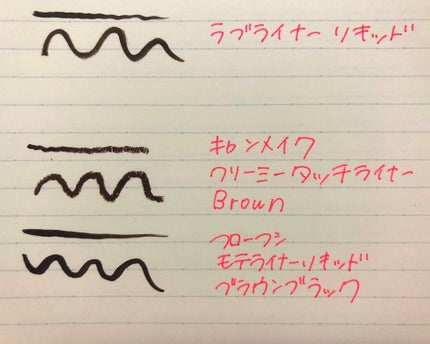 ラブライナー リキッド
キャンメイク
クリーミータッチライナー
Brown
フローフシ
モテライナーリキッド
ブラウンブラック